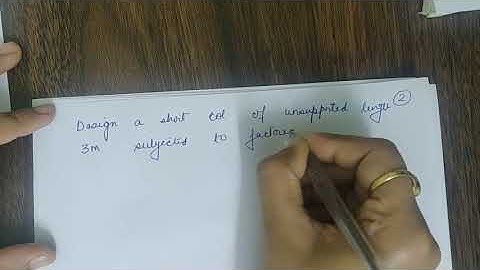 Design a short col of unsupported length ②
3m subjected to factore